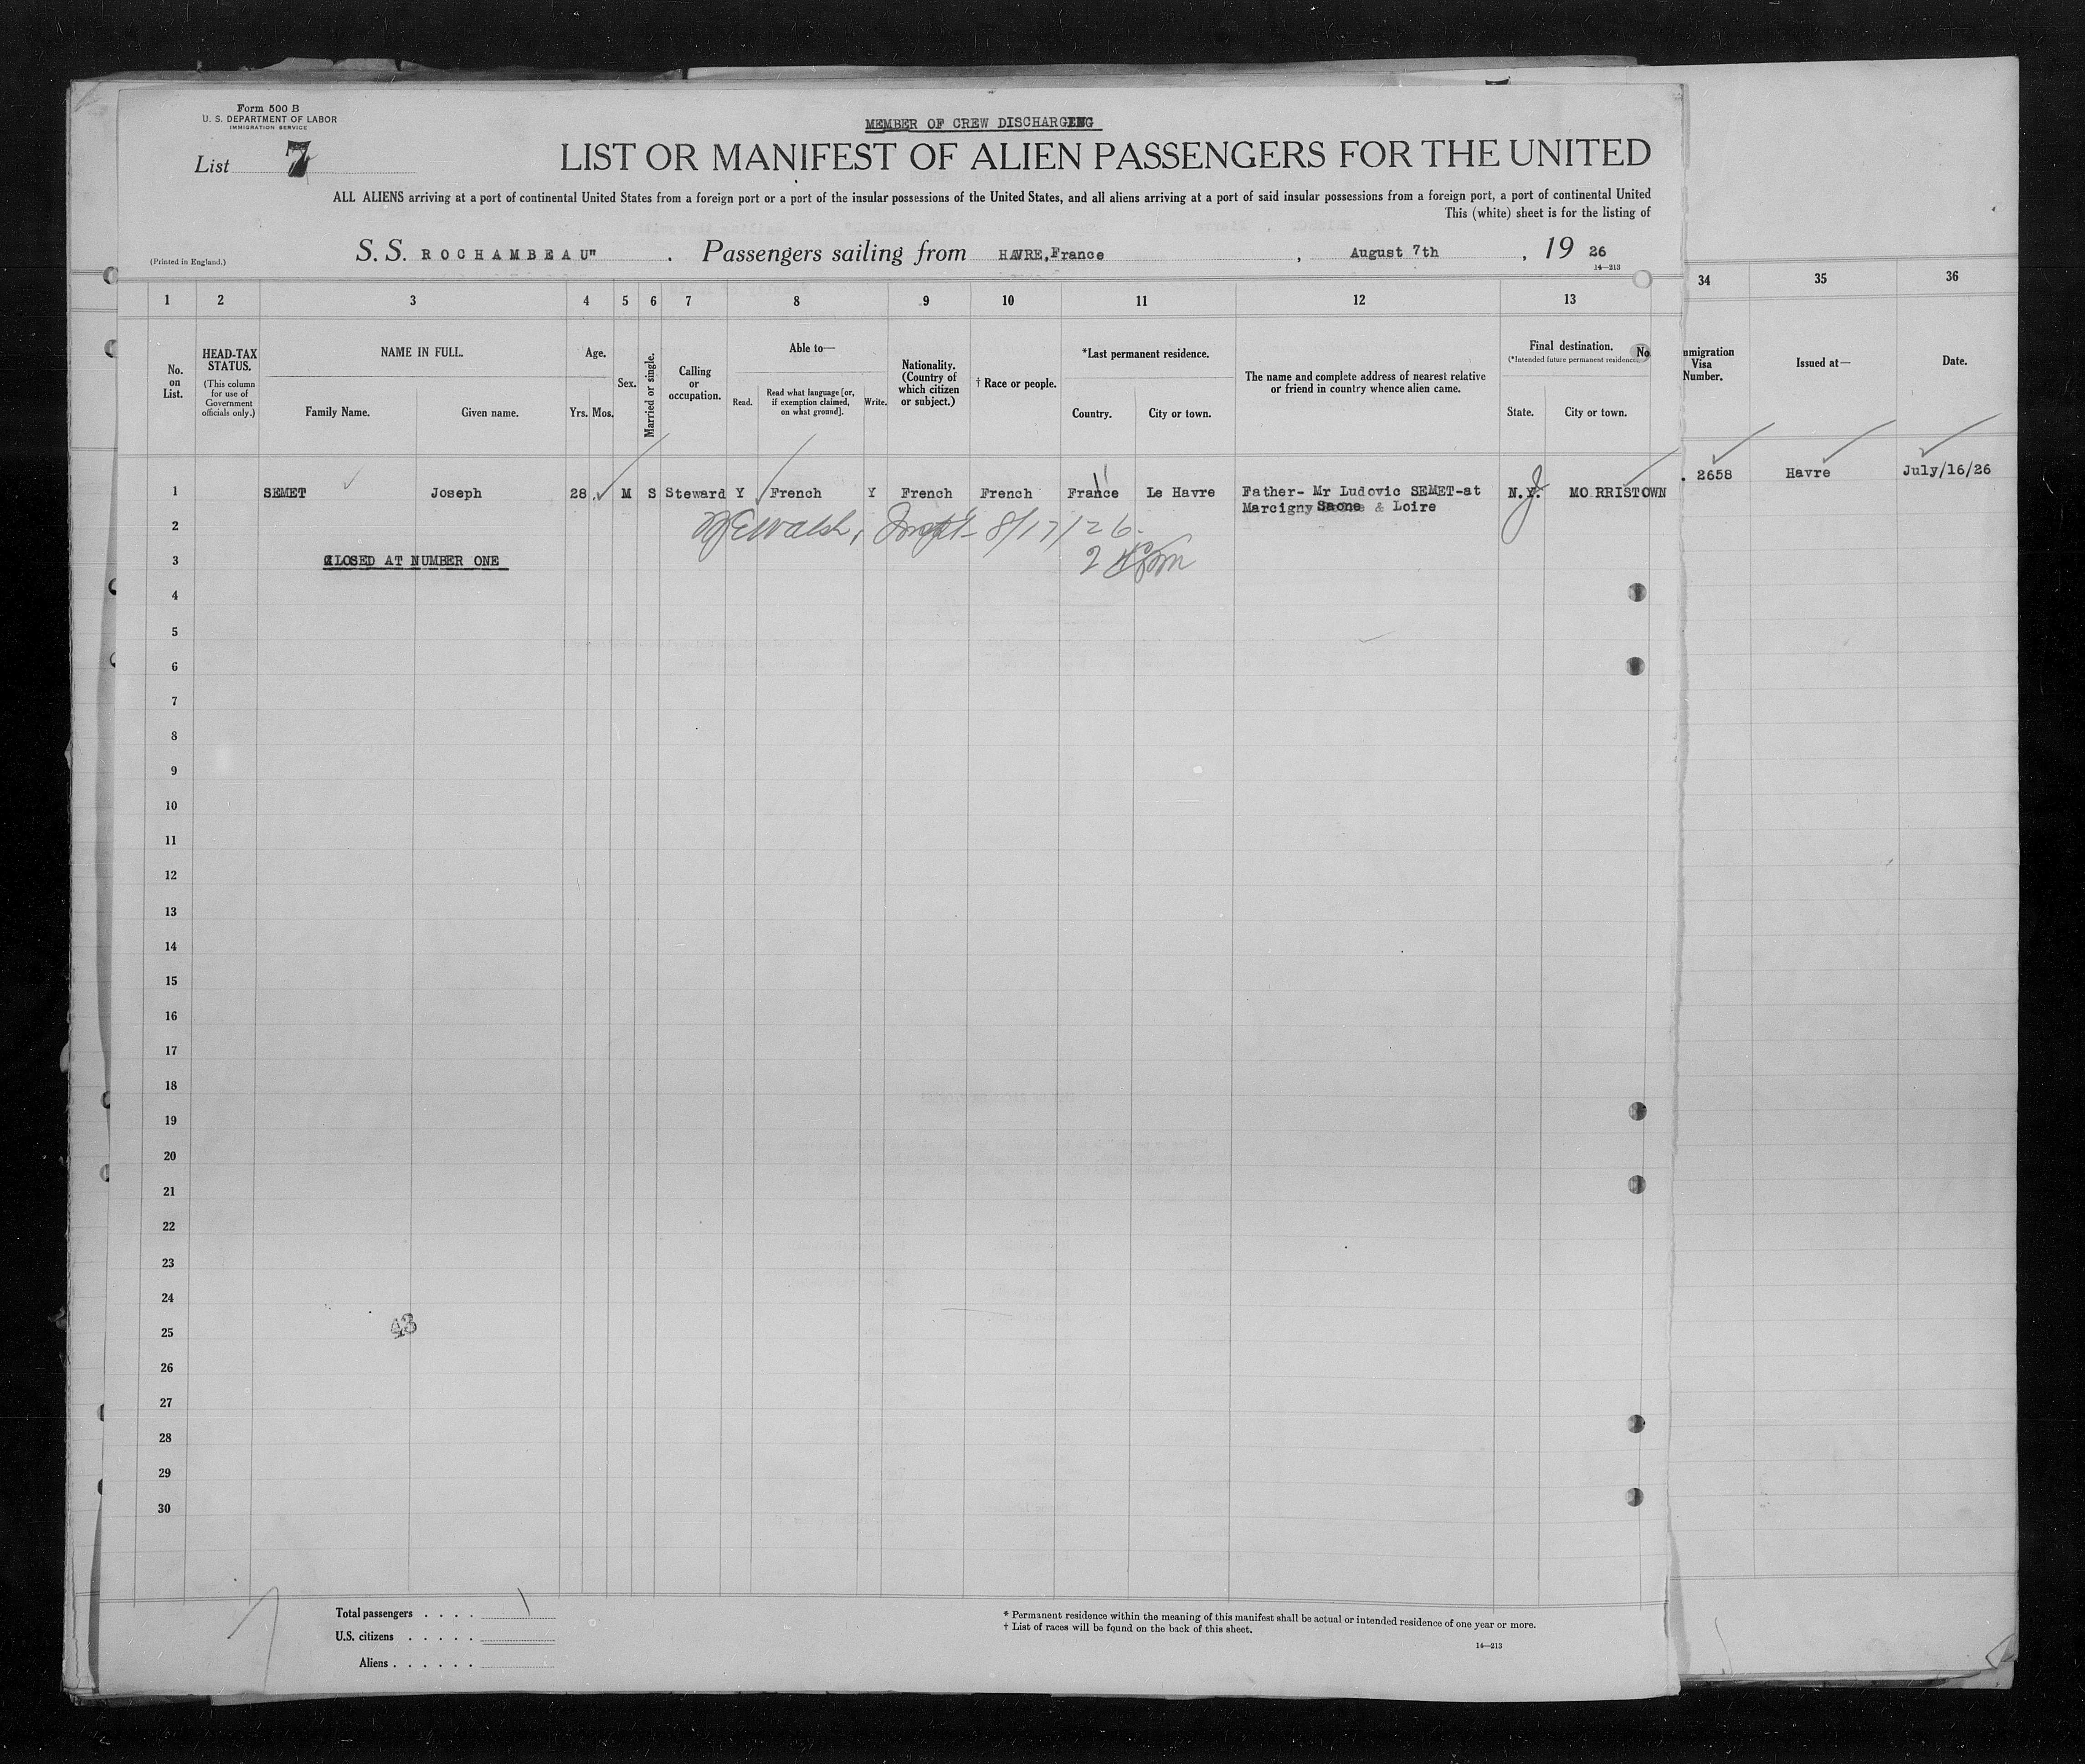 Form 500 B
U. S. DEPARTMENT OF LABOR
IMMIGRATION SERVICE
List 7
MEMBER OF CREW DISCHARGING
LIST OR MANIFEST OF ALIEN PASSENGERS FOR THE UNITED
ALL ALIENS arriving at a port of continental United States from a foreign port or a port of the insular possessions of the United States, and all aliens arriving at a port of said insular possessions from a foreign port, a port of continental United
This (white) sheet is for the listing of
(Printed in England.)
S. S. ROCHAMBEAU" . Passengers sailing from HAVRE,France , August 7th , 19 26
14—213
1 2 3 4 5 6 7 8 9 10 11 12 13 34 35 36
No. on List.
HEAD-TAX STATUS.
(This column for use of Government officials only.)
NAME IN FULL.
Family Name. Given name.
Age.
Yrs. Mos.
Sex.
Married or single.
Calling or occupation.
Able to—
Read.
Read what language [or, if exemption claimed, on what ground].
Write.
Nationality. (Country of which citizen or subject.)
† Race or people.
*Last permanent residence.
Country. City or town.
The name and complete address of nearest relative or friend in country whence alien came.
Final destination.
(*Intended future permanent residence.)
State. City or town.
No
mmigration Visa Number.
Issued at—
Date.
1 SEMET Joseph 28 M S Steward Y French Y French French France Le Havre Father- Mr Ludovic SEMET-at N.J. MORRISTOWN . 2658 Havre July/16/26
Marcigny Saone & Loire
2 Walsh, Inspt- 8/17/26.
3 CLOSED AT NUMBER ONE
4
5
6
7
8
9
10
11
12
13
14
15
16
17
18
19
20
21
22
23
24
25 43
26
27
28
29
30
Total passengers . . . . 1
U.S. citizens . . . . .
Aliens . . . . . .
* Permanent residence within the meaning of this manifest shall be actual or intended residence of one year or more.
† List of races will be found on the back of this sheet.
14—213